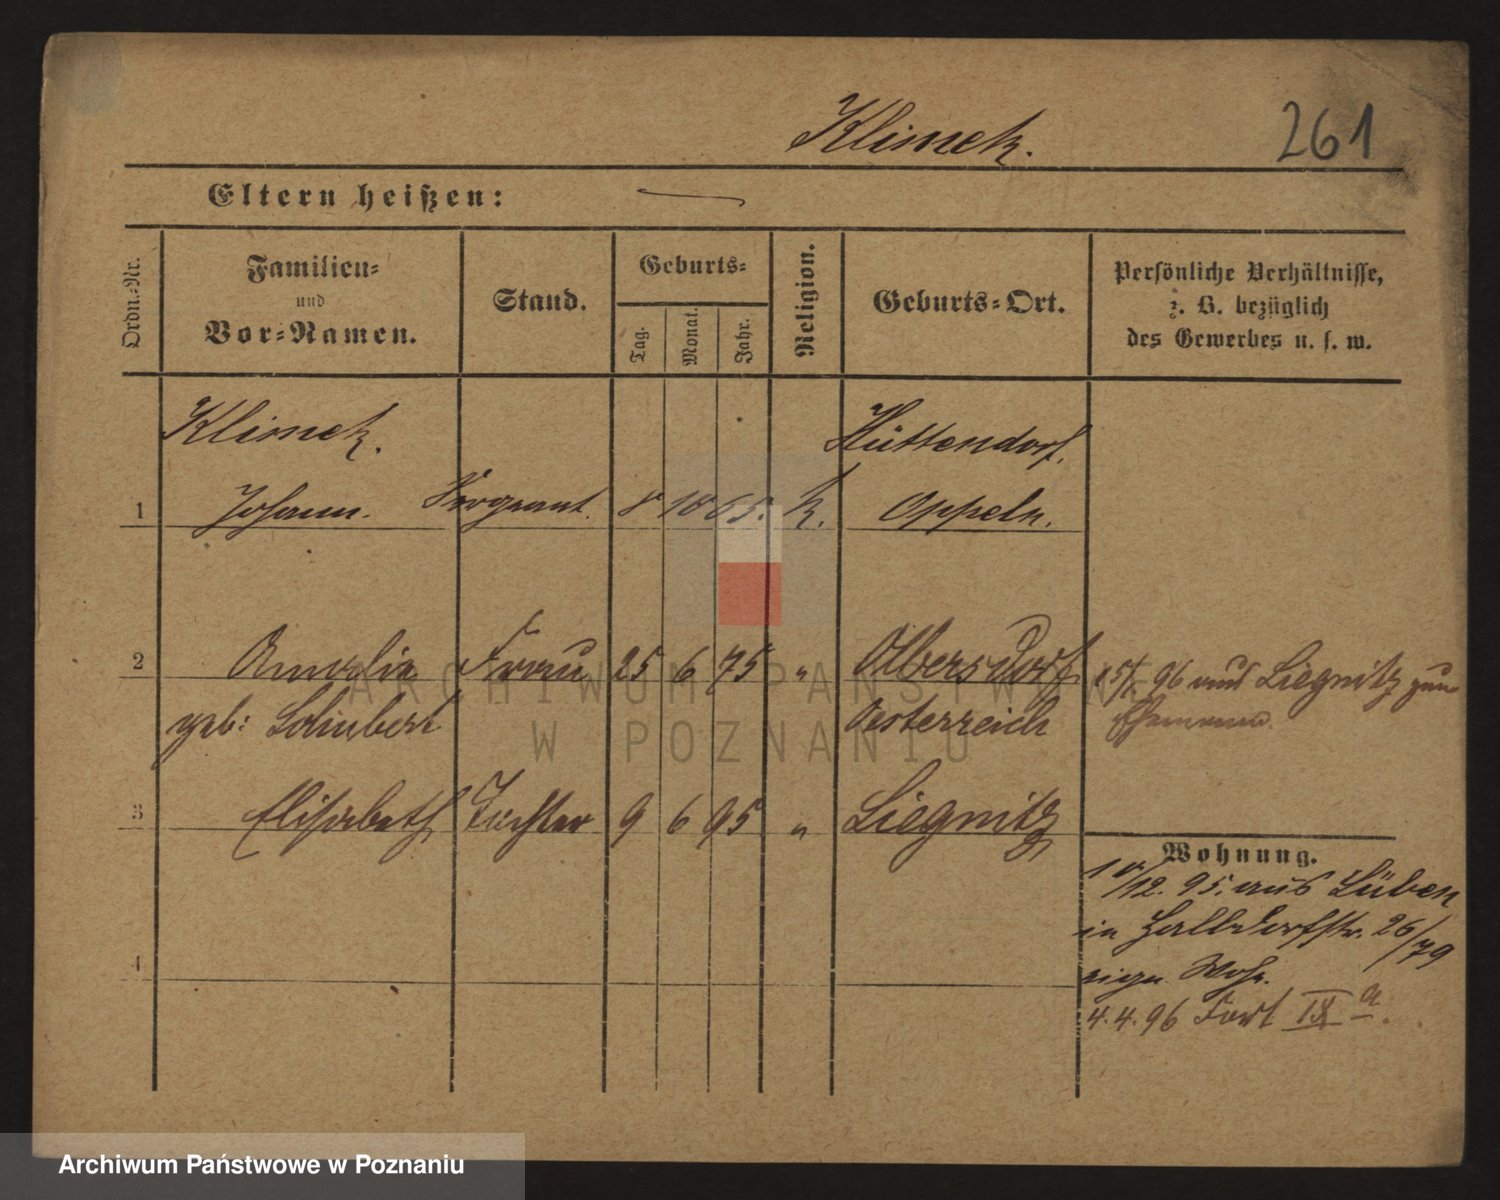 Klimek.
261
Eltern heißen:
Ordn.-Nr.
Familien-
und
Vor-Namen.
Stand.
Geburts-
Tag.
Monat.
Jahr.
Religion.
Geburts-Ort.
Persönliche Verhältnisse,
z. B. bezüglich
des Gewerbes u. s. w.
Klimek. Hüttendorf,
1 Johann. Sergeant. 8 10 65. k. Oppeln.
2 Amalie Frau 25 6 75 " Olbersdorf 96 aus Liegnitz zum
geb: Schubert Oesterreich Ehemann.
3 Elisabeth Tochter 9 6 95 " Liegnitz
Wohnung.
12. 95. aus Lüben
in Halbdorfstr. 26/79
4
eign. Wohn.
4. 4. 96 Fort IX a.
ARCHIWUM PAŃSTWOWE
W POZNANIU
Archiwum Państwowe w Poznaniu